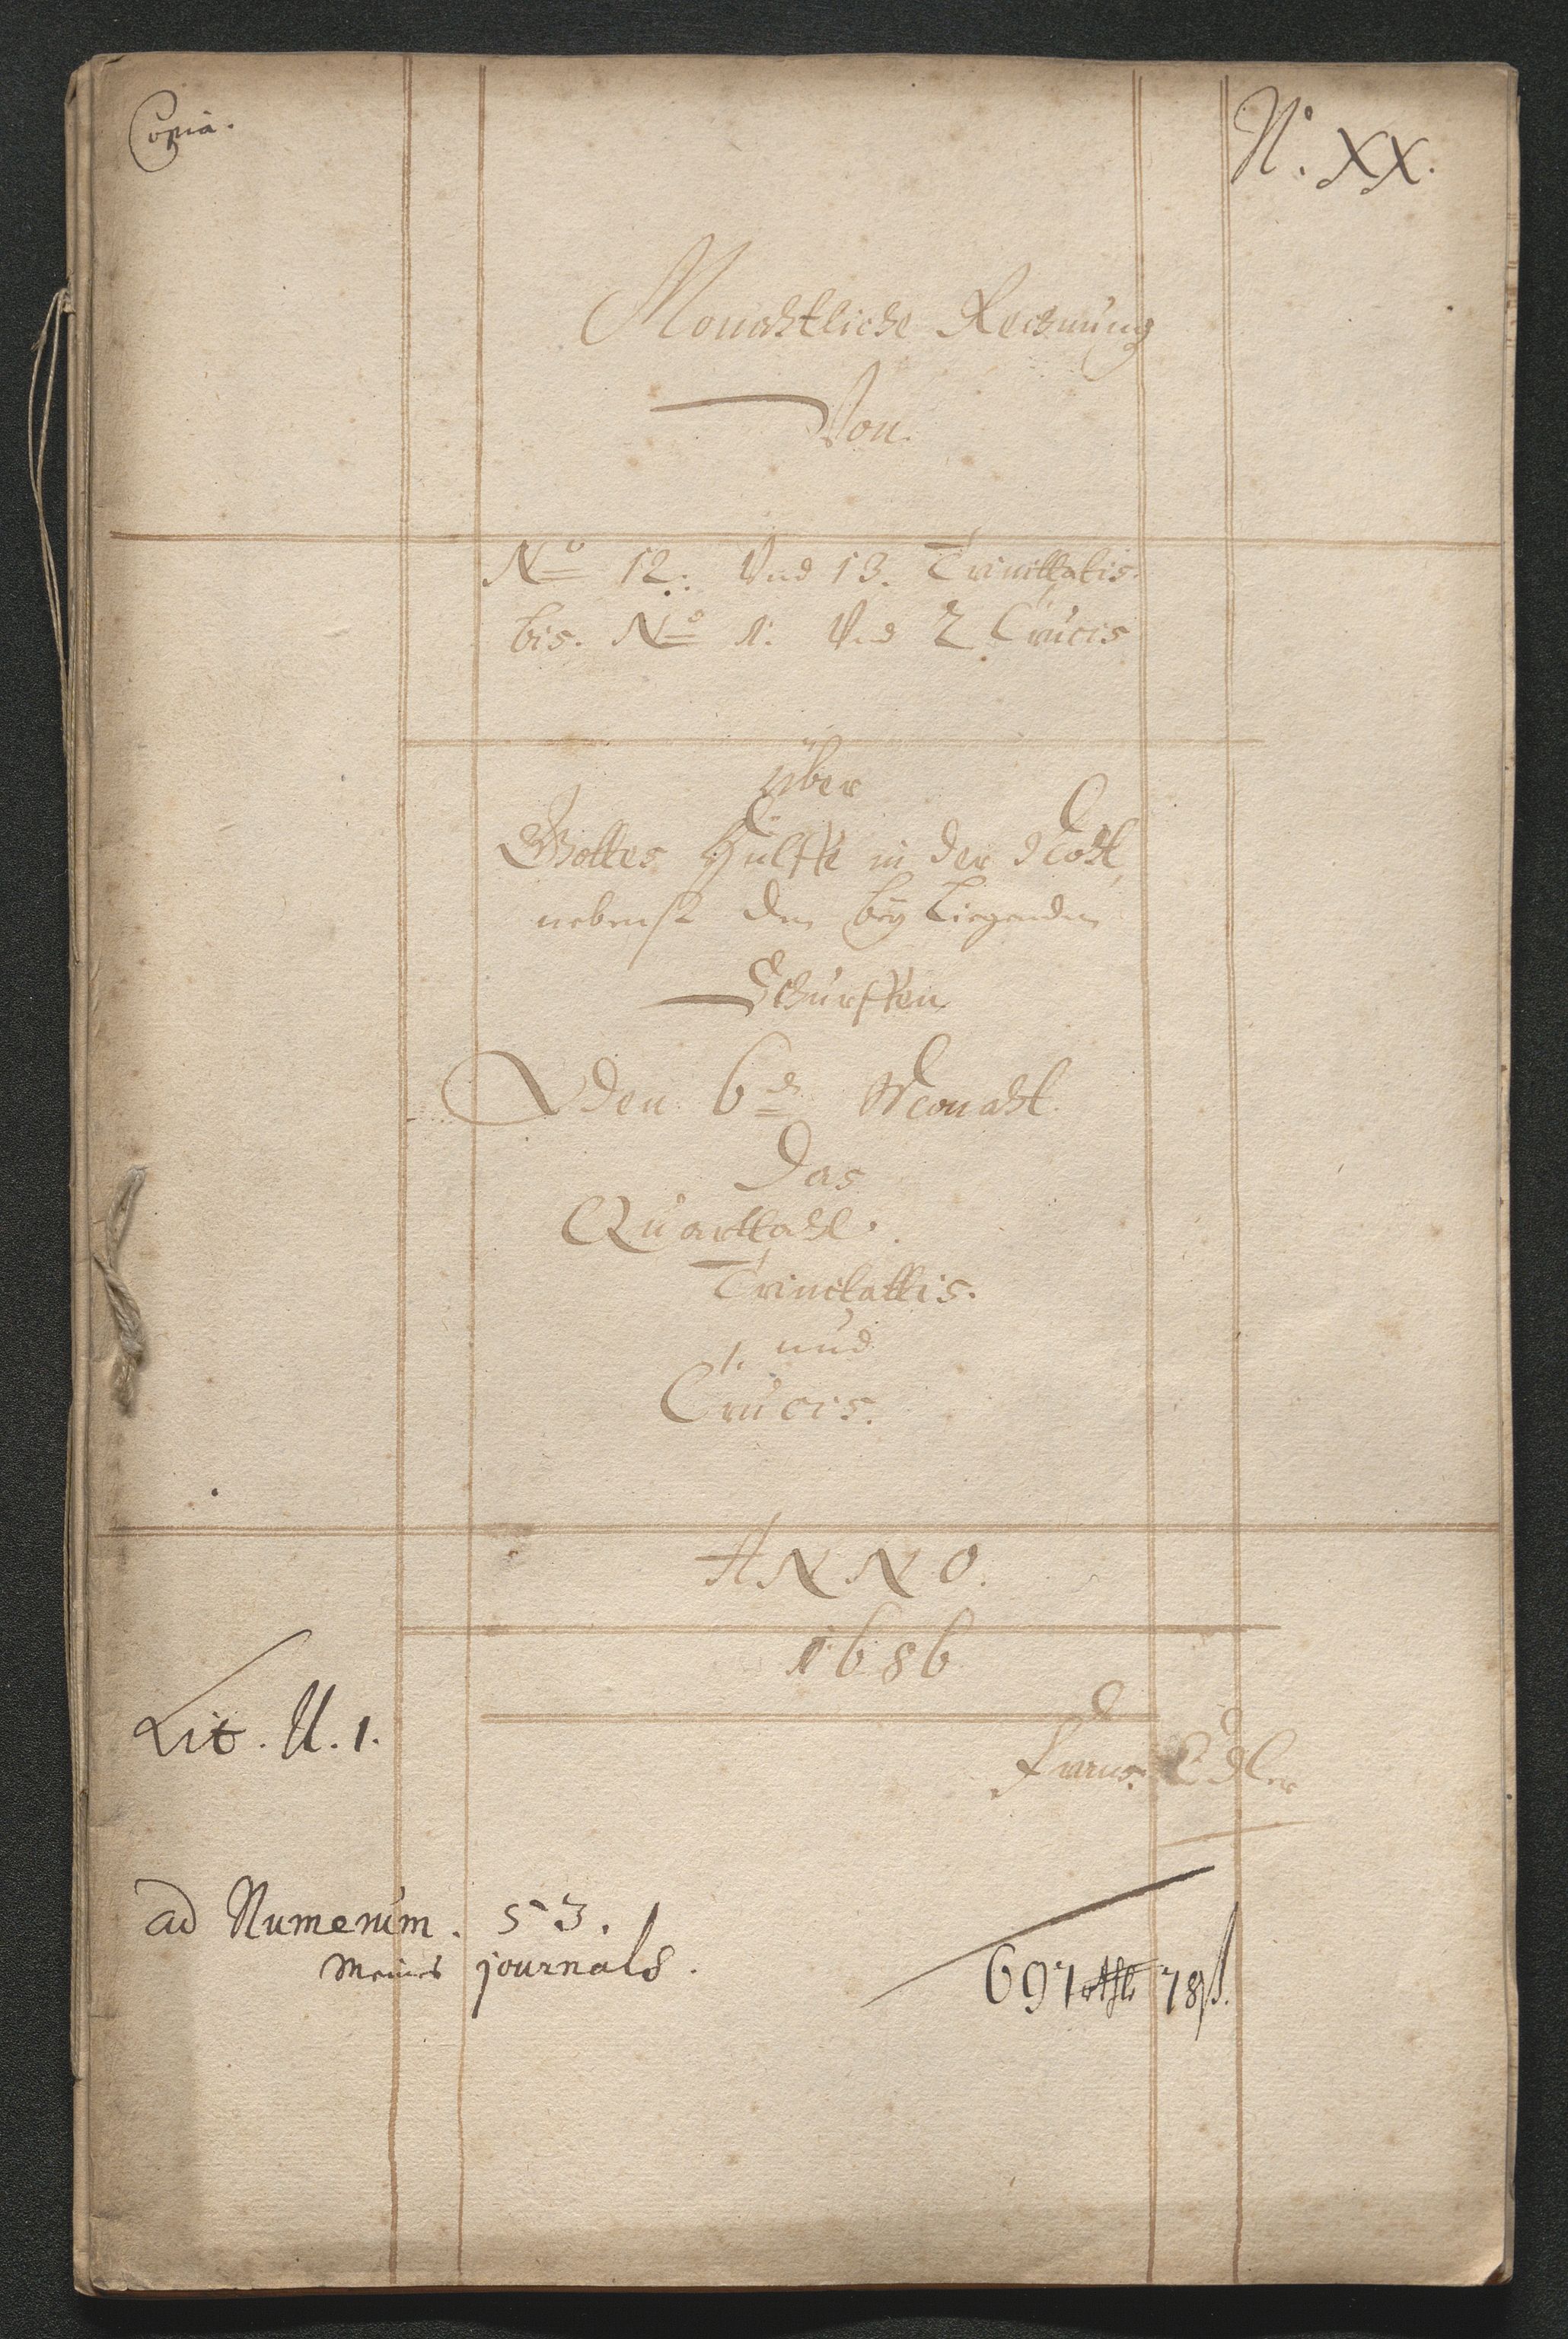 Copia.
N. XX.
Monahtliche Rechnung
Von.
No 12. Vnd 13. Trinittatis.
bis. No 1. Vnd 2 Crucis
über
Gottes Hülffe in der Noht,
nebenst den bey Liegenden
Schürffen
Den 6ts Monaht.
Das
Quarttahl.
Trinitattis.
und
Crucis.
ANNO.
1686
Lit. U. 1.
ad Numerum. 53.
meines journals.
697 rthlr 78 ß.